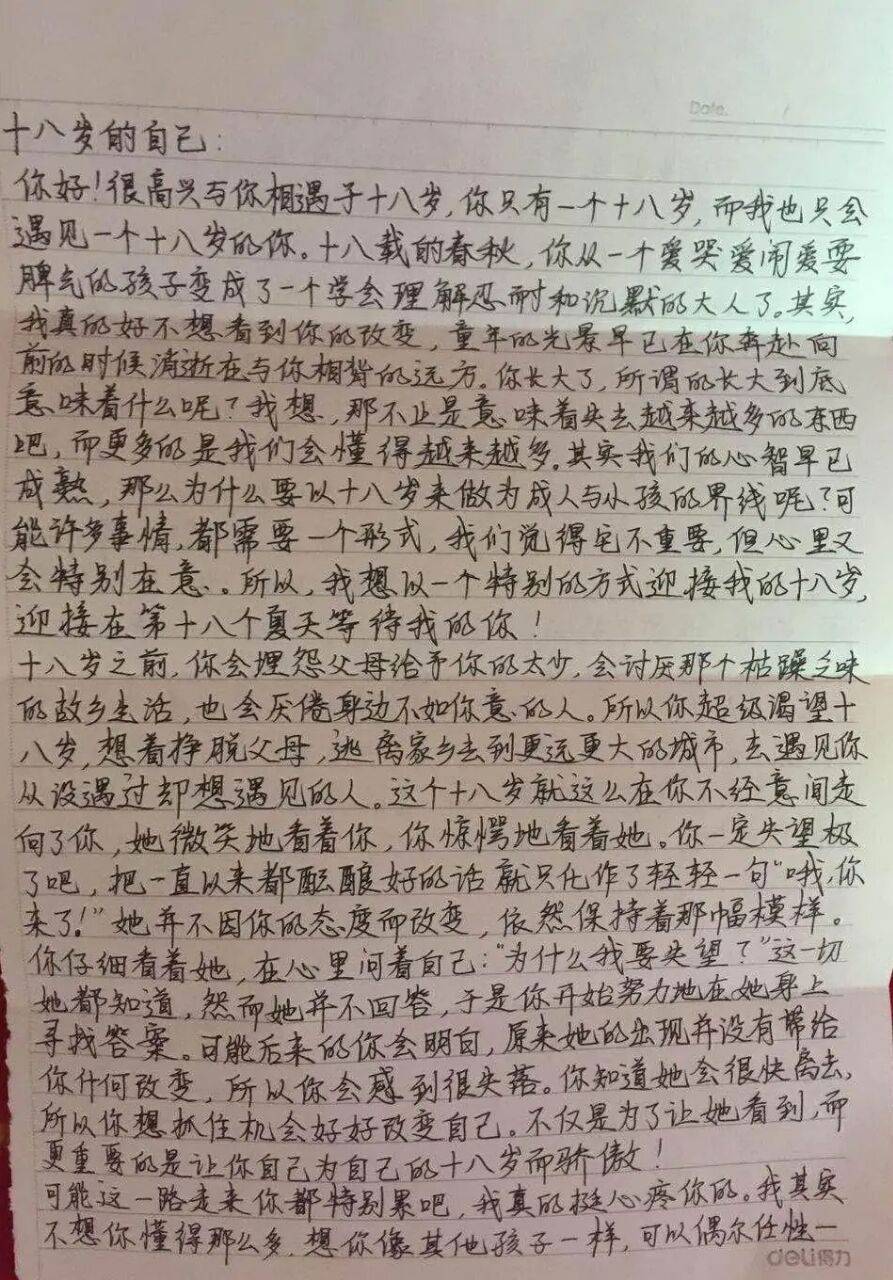 Date.
十八岁的自己:
你好!很高兴与你相遇于十八岁,你只有一个十八岁,而我也只会
遇见一个十八岁的你。十八载的春秋,你从一个爱哭爱闹爱耍
脾气的孩子变成了一个学会理解忍耐和沉默的大人了。其实,
我真的好不想看到你的改变,童年的光景早已在你奔赴向
前的时候消逝在与你相背的远方。你长大了,所谓的长大到底
意味着什么呢?我想,那不止是意味着失去越来越多的东西
吧,而更多的是我们会懂得越来越多。其实我们的心智早已
成熟,那么为什么要以十八岁来做为成人与小孩的界线呢?可
能许多事情,都需要一个形式,我们觉得它不重要,但心里又
会特别在意。所以,我想以一个特别的方式迎接我的十八岁,
迎接在第十八个夏天等待我的你!
十八岁之前,你会埋怨父母给予你的太少,会讨厌那个枯躁乏味
的故乡生活,也会厌倦身边不如你意的人。所以你超级渴望十
八岁,想着挣脱父母,逃离家乡去到更远更大的城市,去遇见你
从没遇过却想遇见的人。这个十八岁就这么在你不经意间走
向了你,她微笑地看着你,你惊愕地看着她。你一定失望极
了吧,把一直以来都酝酿好的话就只化作了轻轻一句"哦,你
来了!"她并不因你的态度而改变,依然保持着那幅模样。
你仔细看着她,在心里问着自己:"为什么我要失望?"这一切
她都知道,然而她并不回答,于是你开始努力地在她身上
寻找答案。可能后来的你会明白,原来她的出现并没有带给
你什何改变,所以你会感到很失落。你知道她会很快离去,
所以你想抓住机会好好改变自己。不仅是为了让她看到,而
更重要的是让你自己为自己的十八岁而骄傲!
可能这一路走来你都特别累吧,我真的挺心疼你的。我其实
不想你懂得那么多,想你像其他孩子一样,可以偶尔任性一
deli得力